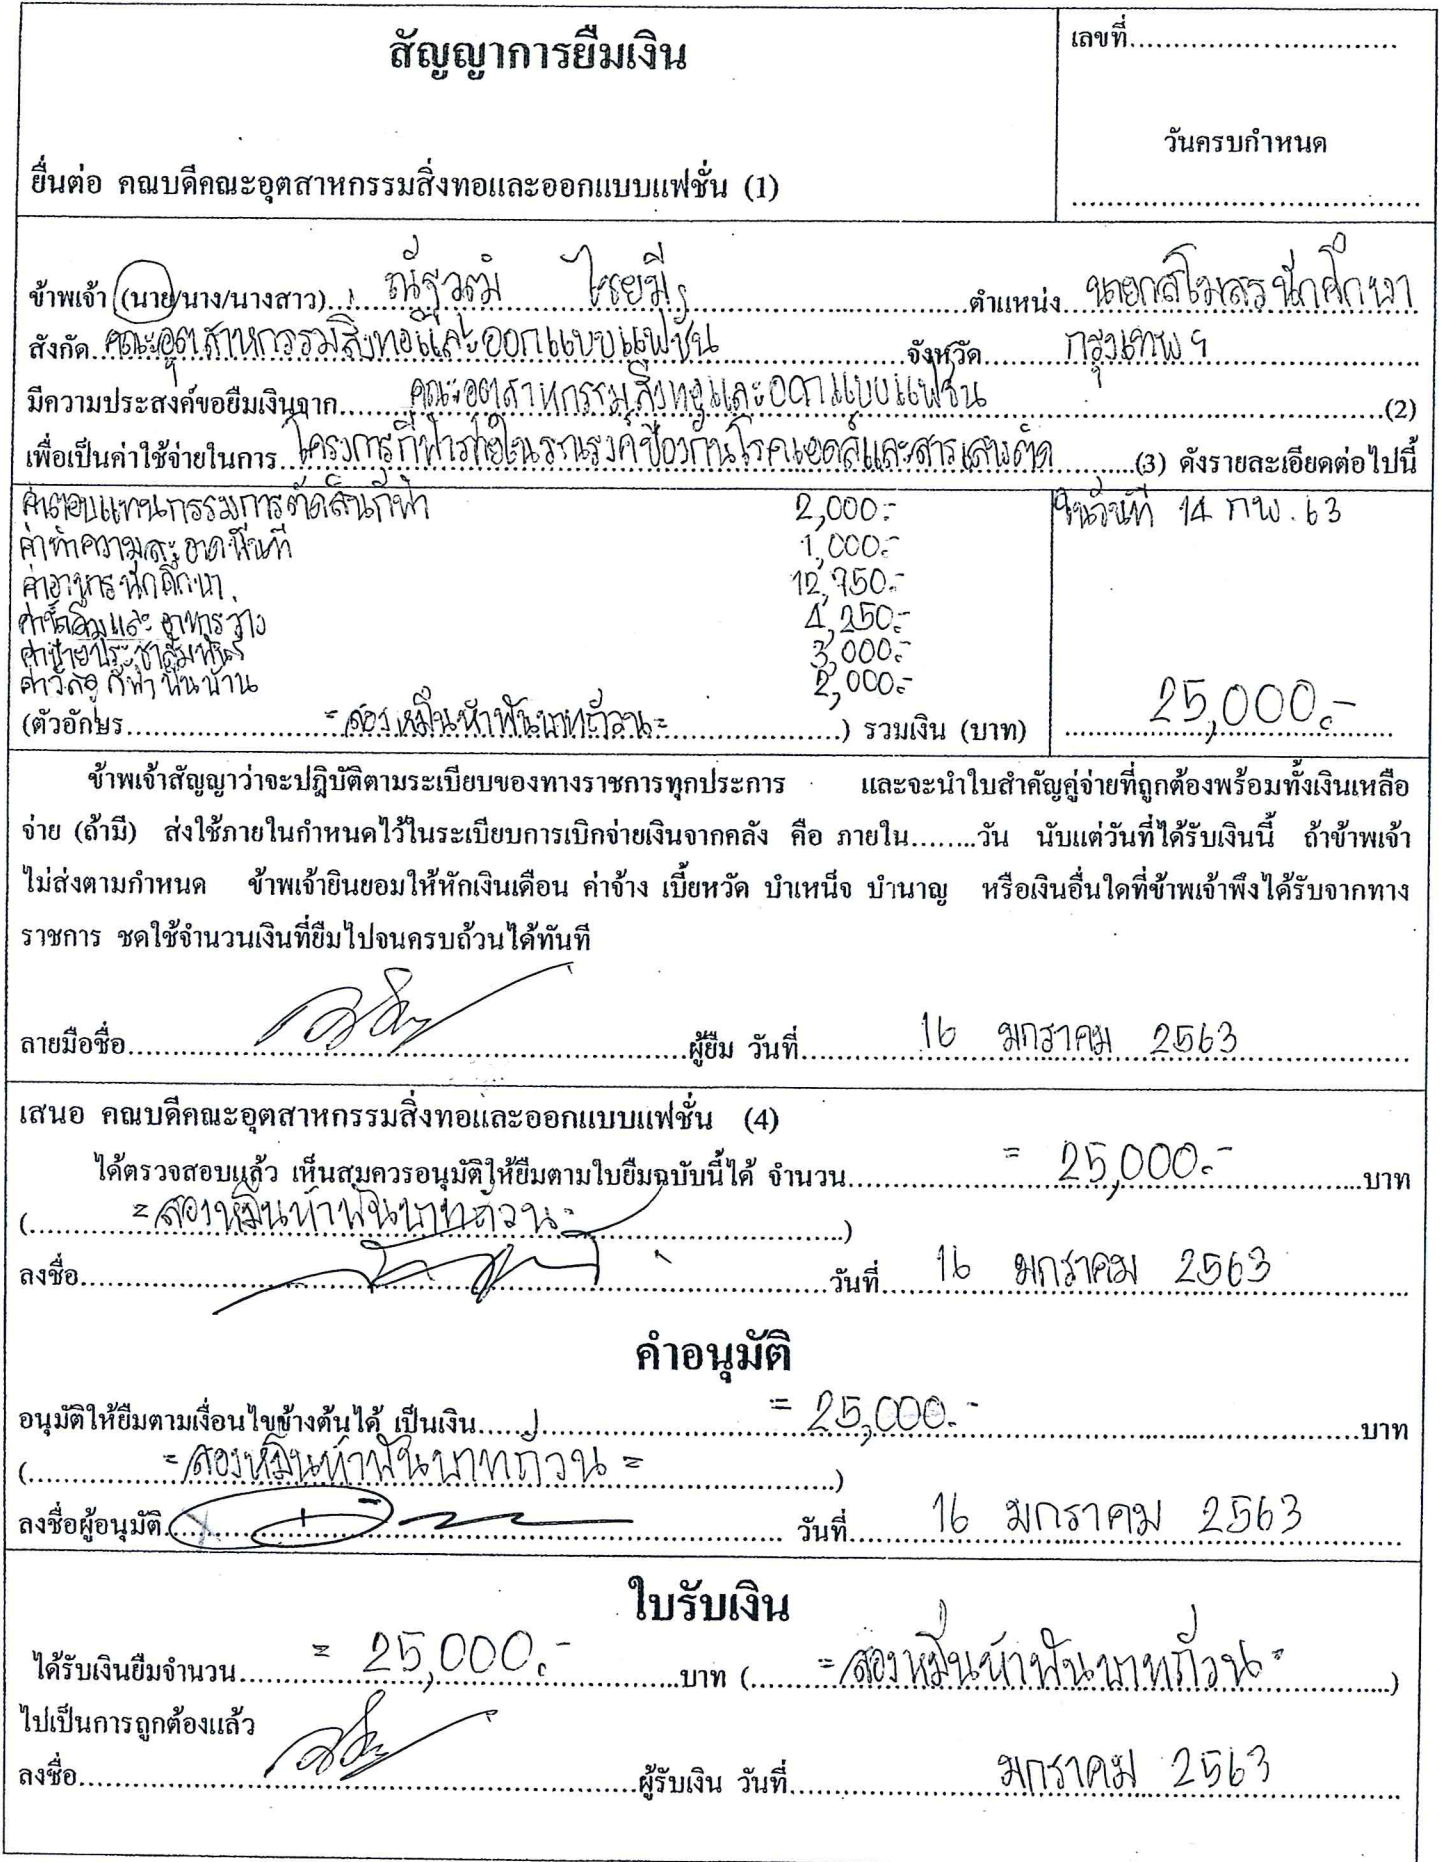 สัญญาการยืมเงิน
เลขที่..............................
วันครบกำหนด
......................................
ยื่นต่อ คณบดีคณะอุตสาหกรรมสิ่งทอและออกแบบแฟชั่น (1)
ข้าพเจ้า (นาย/นาง/นางสาว) ณัฐวุฒิ ไชยมี ตำแหน่ง นายกสโมสรนักศึกษา
สังกัด คณะอุตสาหกรรมสิ่งทอและออกแบบแฟชั่น จังหวัด กรุงเทพฯ
มีความประสงค์ขอยืมเงินจาก คณะอุตสาหกรรมสิ่งทอและออกแบบแฟชั่น (2)
เพื่อเป็นค่าใช้จ่ายในการ โครงการกีฬาภายในรณรงค์ป้องกันโรคเอดส์และสารเสพติด (3) ดังรายละเอียดต่อไปนี้
ค่าตอบแทนกรรมการตัดสินกีฬา 2,000.- ในวันที่ 14 กพ. 63
ค่าทำความสะอาดพื้นที่ 1,000.-
ค่าอาหารนักศึกษา 12,750.-
ค่าเครื่องดื่มและอาหารว่าง 4,250.-
ค่าป้ายประชาสัมพันธ์ 3,000.-
ค่าวัสดุกีฬาพื้นบ้าน 2,000.-
(ตัวอักษร = สองหมื่นห้าพันบาทถ้วน = ) รวมเงิน (บาท) 25,000.-
ข้าพเจ้าสัญญาว่าจะปฏิบัติตามระเบียบของทางราชการทุกประการ และจะนำใบสำคัญคู่จ่ายที่ถูกต้องพร้อมทั้งเงินเหลือ
จ่าย (ถ้ามี) ส่งใช้ภายในกำหนดไว้ในระเบียบการเบิกจ่ายเงินจากคลัง คือ ภายใน........วัน นับแต่วันที่ได้รับเงินนี้ ถ้าข้าพเจ้า
ไม่ส่งตามกำหนด ข้าพเจ้ายินยอมให้หักเงินเดือน ค่าจ้าง เบี้ยหวัด บำเหน็จ บำนาญ หรือเงินอื่นใดที่ข้าพเจ้าพึงได้รับจากทาง
ราชการ ชดใช้จำนวนเงินที่ยืมไปจนครบถ้วนได้ทันที
ลายมือชื่อ..............................ผู้ยืม วันที่ 16 มกราคม 2563
เสนอ คณบดีคณะอุตสาหกรรมสิ่งทอและออกแบบแฟชั่น (4)
ได้ตรวจสอบแล้ว เห็นสมควรอนุมัติให้ยืมตามใบยืมฉบับนี้ได้ จำนวน = 25,000.- บาท
( = สองหมื่นห้าพันบาทถ้วน = )
ลงชื่อ..............................วันที่ 16 มกราคม 2563
คำอนุมัติ
อนุมัติให้ยืมตามเงื่อนไขข้างต้นได้ เป็นเงิน = 25,000.- บาท
( = สองหมื่นห้าพันบาทถ้วน = )
ลงชื่อผู้อนุมัติ.............................. วันที่ 16 มกราคม 2563
ใบรับเงิน
ได้รับเงินยืมจำนวน = 25,000.- บาท ( = สองหมื่นห้าพันบาทถ้วน = )
ไปเป็นการถูกต้องแล้ว
ลงชื่อ..............................ผู้รับเงิน วันที่ มกราคม 2563